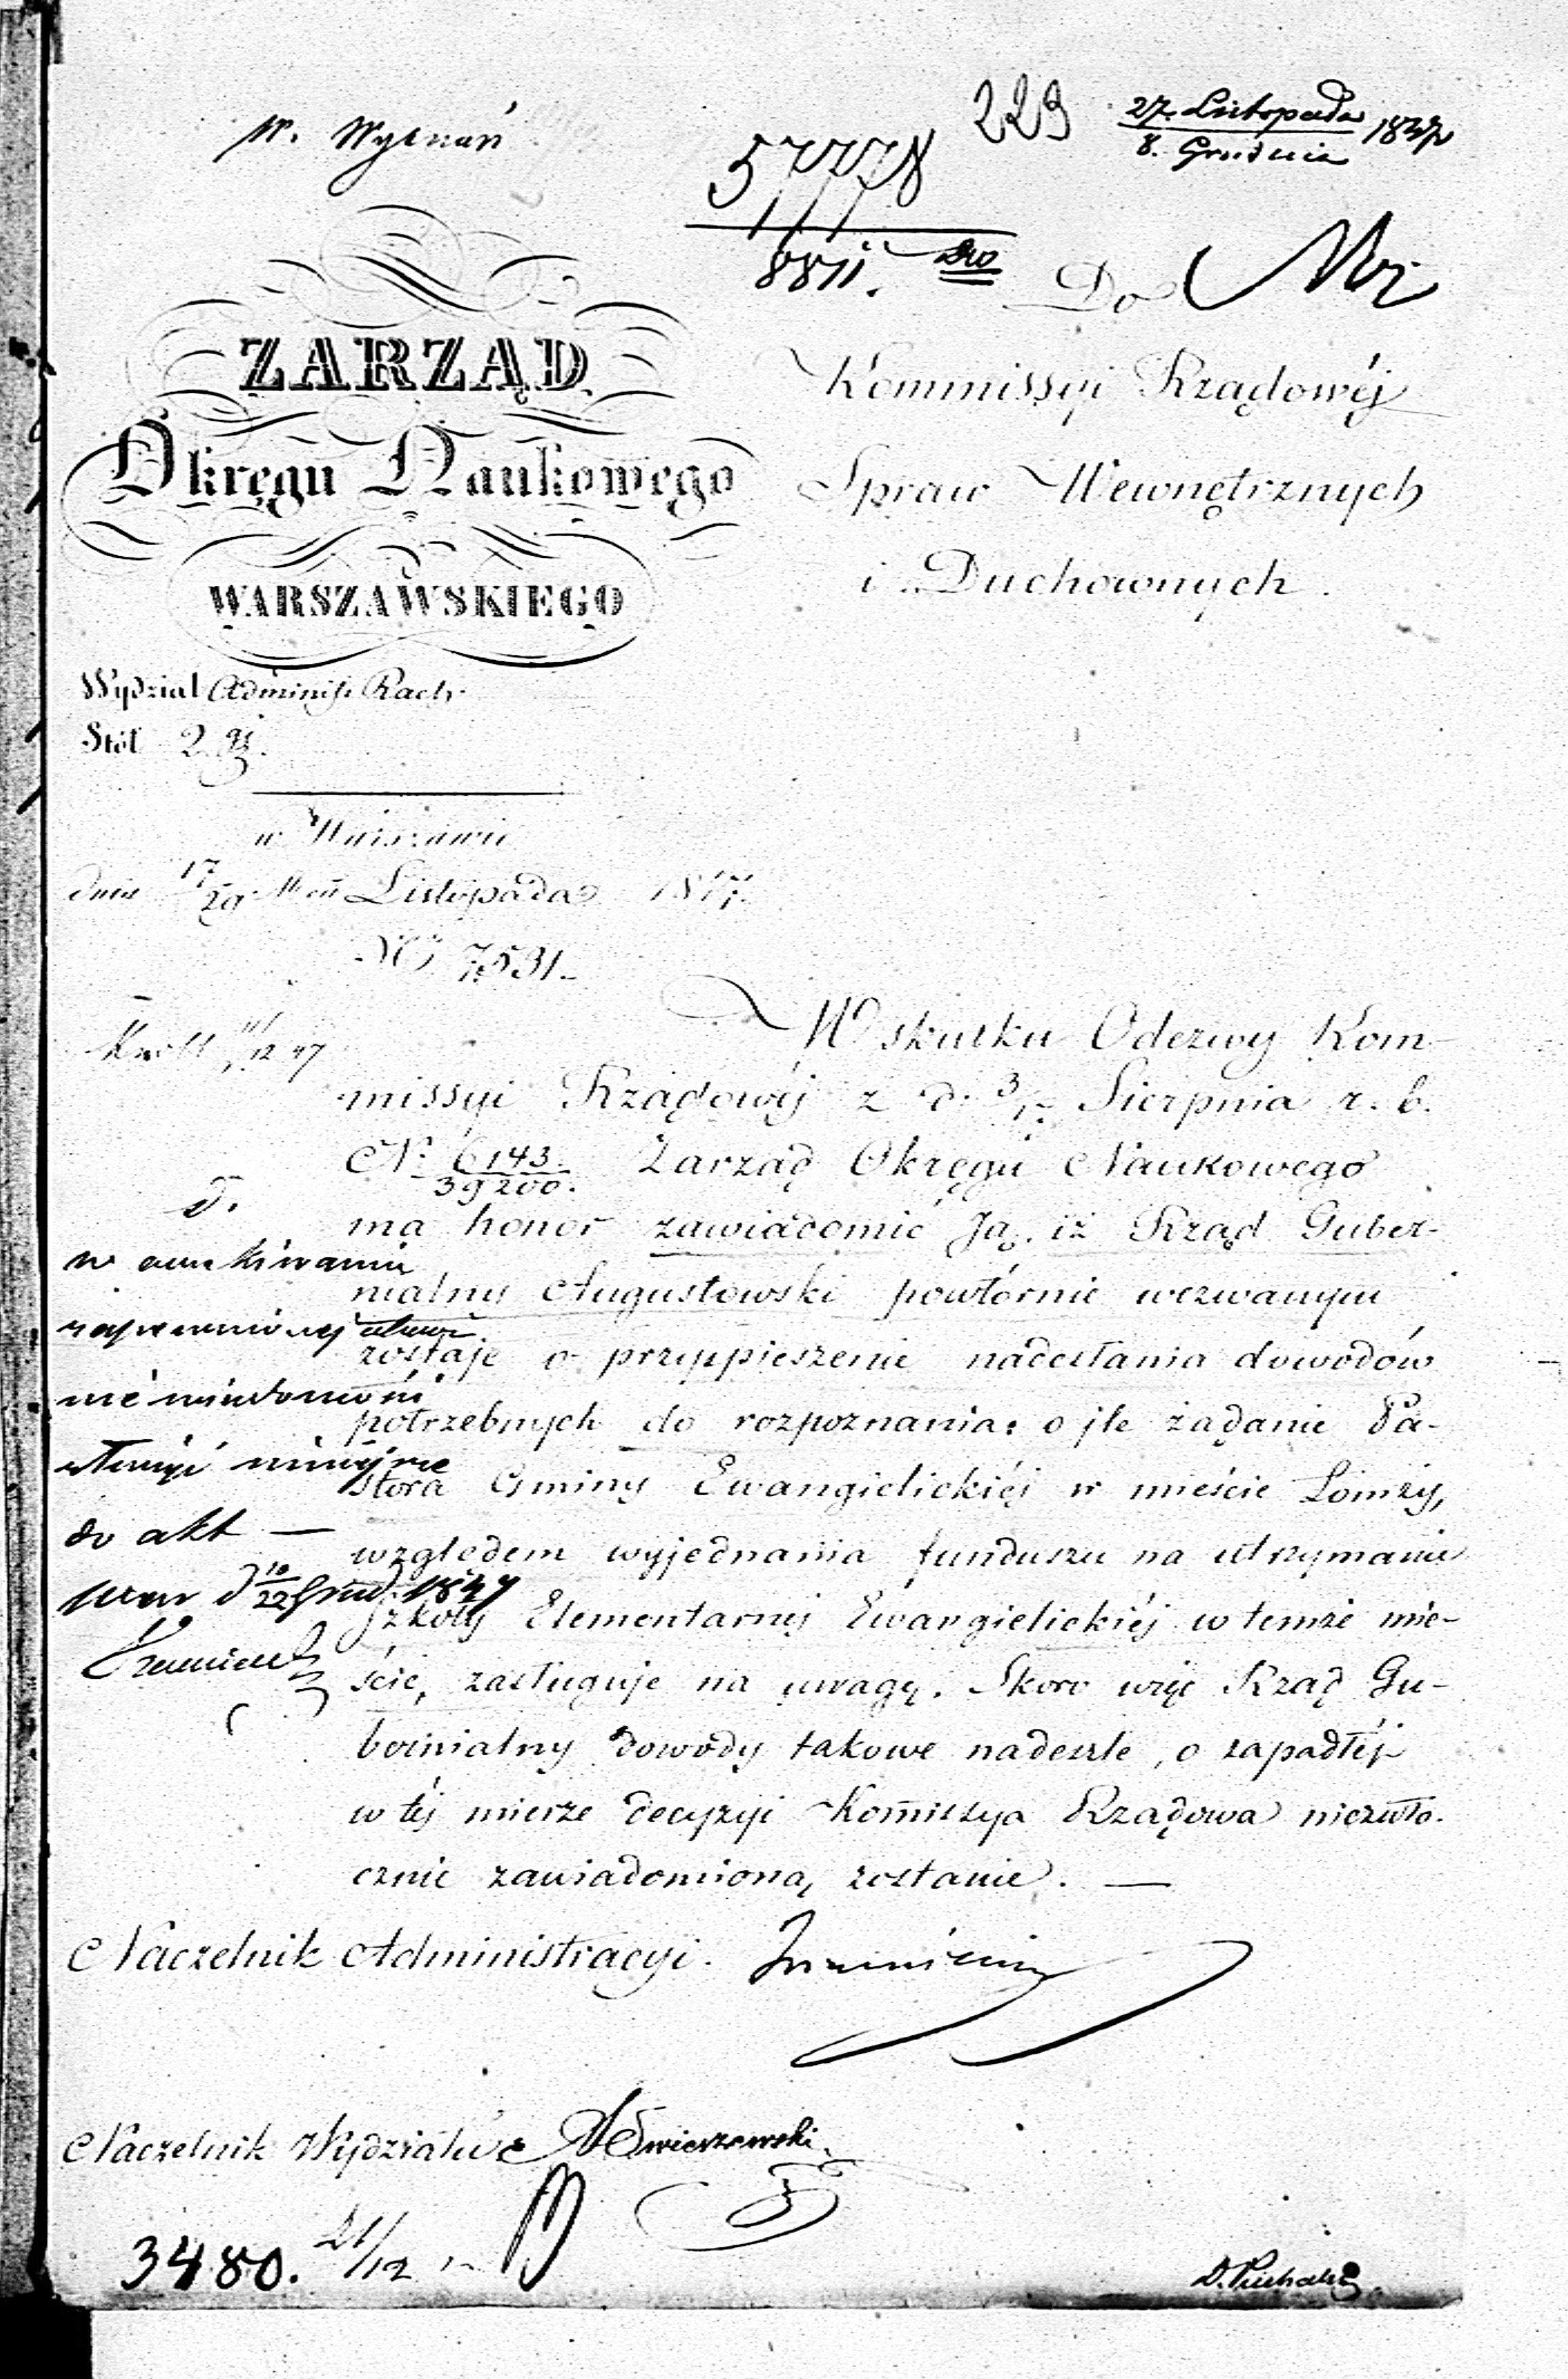 W. Wyznań
223
27. Listopada
8. Grudnia 1847
57778
8811.
Do
Kommissyi Rządowéj
Spraw Wewnętrznych
i Duchownych.
ZARZĄD
Okręgu Naukowego
WARSZAWSKIEGO
Wydział Administ Rach.
Stół 2gi.
w Warszawie
dnia 17/29 Listopada 1847.
No 7531.
12 47
W skutku Odezwy Kom-
missyi Rządowéj z d. 3/15 Sierpnia r. b.
No 6143/39200. Zarząd Okręgu Naukowego
ma honor zawiadomić Ją, iż Rząd Guber-
nialny Augustowski powtórnie wezwanym
zostaje o przyspieszenie nadesłania dowodów
potrzebnych do rozpoznania: o jle żądanie Pa-
stora Gminy Ewangielickiéj w mieście Łomży,
względem wyjednania funduszu na utrzymanie
Szkoły Elementarnéj Ewangielickiéj w temże mie-
ście, zasługuje na uwagę. Skoro więc Rząd Gu-
bernialny dowody takowe nadeszle, o zapadłéj
w téj mierze decyzyi Kommissya Rządowa niezwło-
cznie zawiadomioną zostanie. —
D.
w oczekiwaniu
zapewnionéj
niewiadomości
złożyć niniejsze
do akt —
d 10/22 Grud. 1847
Naczelnik Administracyi.
Naczelnik Wydziału
Świeszewski
3480. 21/12
D. Puchalski